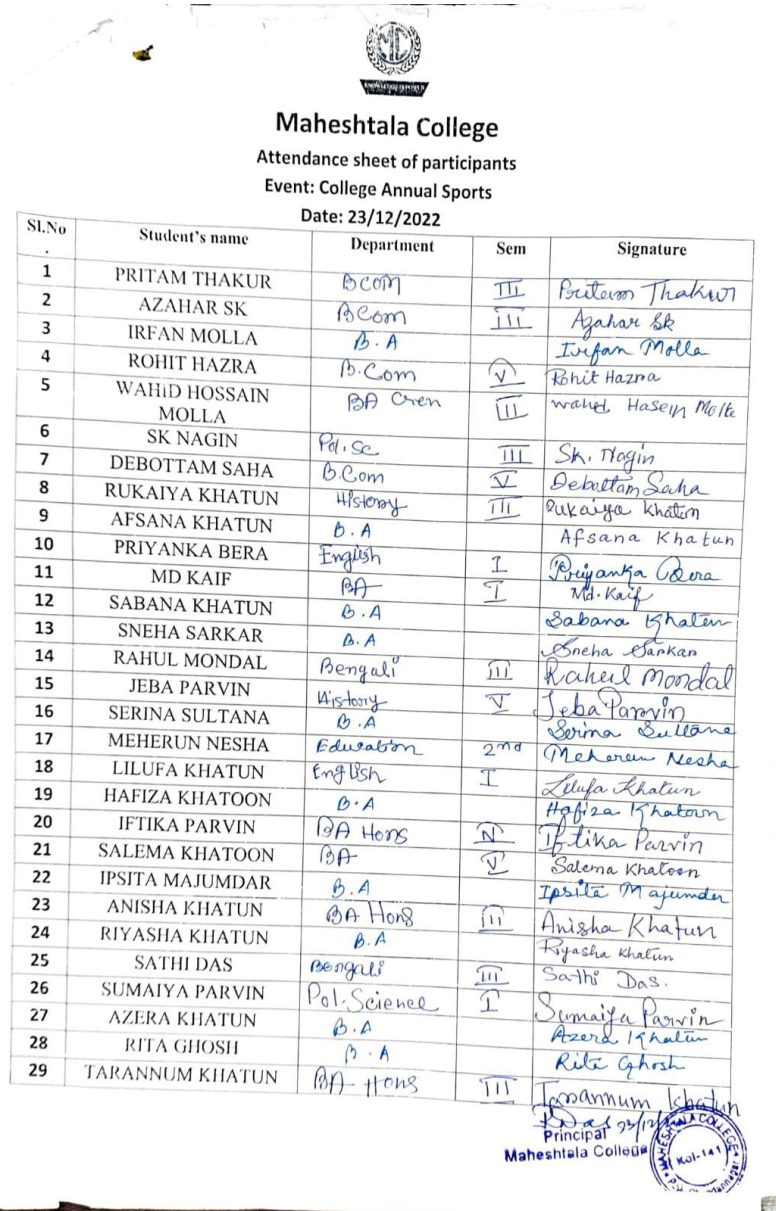 MC
Maheshtala College
Attendance sheet of participants
Event: College Annual Sports
Date: 23/12/2022
Sl.No. Student's name Department Sem Signature
1 PRITAM THAKUR BCOM III Pritam Thakur
2 AZAHAR SK BCom III Azahar Sk
3 IRFAN MOLLA B.A Irfan Molla
4 ROHIT HAZRA B.Com V Rohit Hazra
5 WAHiD HOSSAIN MOLLA BA Gen III Wahed Hasein Molla
6 SK NAGIN Pol.Sc III Sk. Nagin
7 DEBOTTAM SAHA B.Com V Debottam Saha
8 RUKAIYA KHATUN History III Rukaiya Khatun
9 AFSANA KHATUN B.A Afsana Khatun
10 PRIYANKA BERA English I Priyanka Bera
11 MD KAIF BA I Md. Kaif
12 SABANA KHATUN B.A Sabana Khatun
13 SNEHA SARKAR B.A Sneha Sarkar
14 RAHUL MONDAL Bengali III Rahul Mondal
15 JEBA PARVIN History V Jeba Parvin
16 SERINA SULTANA B.A Serina Sultana
17 MEHERUN NESHA Education 2nd Meherun Nesha
18 LILUFA KHATUN English I Lilufa Khatun
19 HAFIZA KHATOON B.A Hafiza Khatoon
20 IFTIKA PARVIN BA Hons IV Iftika Parvin
21 SALEMA KHATOON BA V Salema Khatoon
22 IPSITA MAJUMDAR B.A Ipsita Majumder
23 ANISHA KHATUN BA Hons III Anisha Khatun
24 RIYASHA KHATUN B.A Riyasha Khatun
25 SATHI DAS Bengali III Sathi Das.
26 SUMAIYA PARVIN Pol. Science I Sumaiya Parvin
27 AZERA KHATUN B.A Azera Khatun
28 RITA GHOSH B.A Rita Ghosh
29 TARANNUM KHATUN BA-Hons III Tarannum Khatun
23/12/
Principal
Maheshtala College
MAHESHTALA COLLEGE
Kol-141